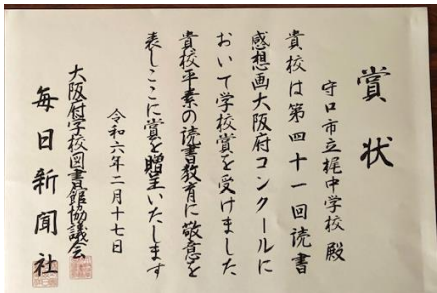 賞状
守口市立梶中学校 殿
貴校は第四十一回読書
感想画大阪府コンクールに
おいて学校賞を受けました
貴校平素の読書教育に敬意を
表しここに賞を贈呈いたします
令和六年二月十七日
大阪府学校図書館協議会
毎日新聞社